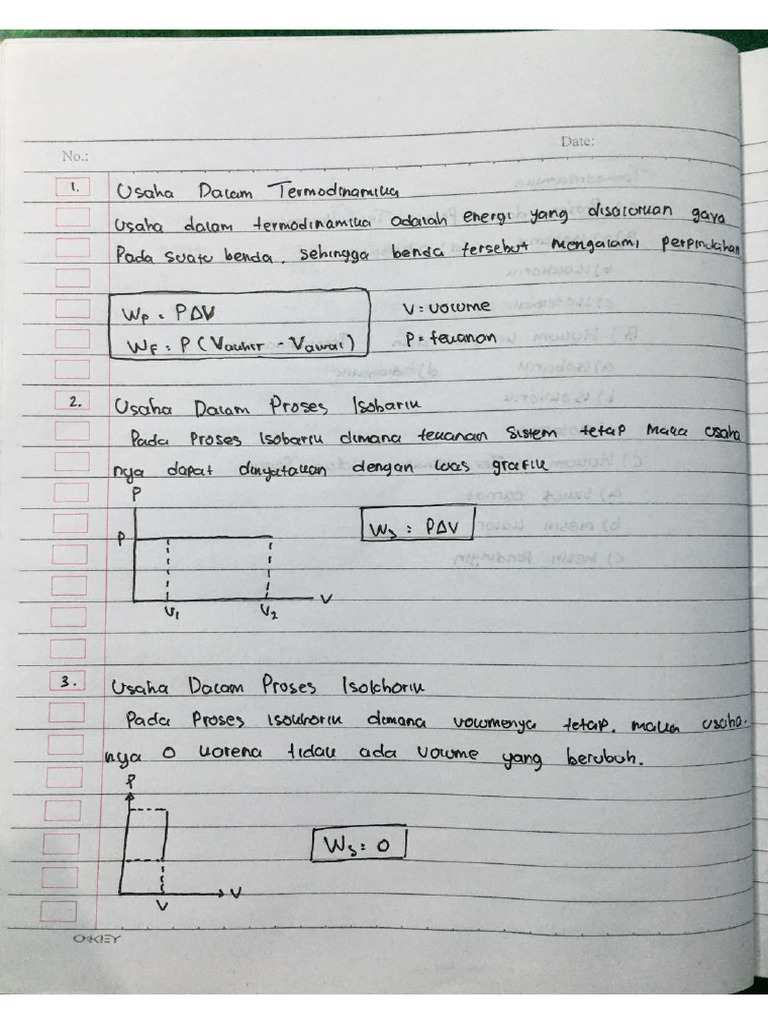 No.:
Date:
1. Usaha Dalam Termodinamika
Usaha dalam termodinamika adalah energi yang disalurkan gaya
Pada suatu benda, sehingga benda tersebut mengalami perpindahan
Wf = P∆V
V = volume
Wf = P (Vakhir - Vawal)
P = tekanan
2. Usaha Dalam Proses Isobarik
Pada Proses Isobarik dimana tekanan sistem tetap maka usaha
nya dapat dinyatakan dengan luas grafik
P
P
Ws = P∆V
V
V1 V2
3. Usaha Dalam Proses Isokhorik
Pada Proses isokhorik dimana volumenya tetap, maka usaha.
nya 0 karena tidak ada volume yang berubah.
P
Ws = 0
V
V
OKEY